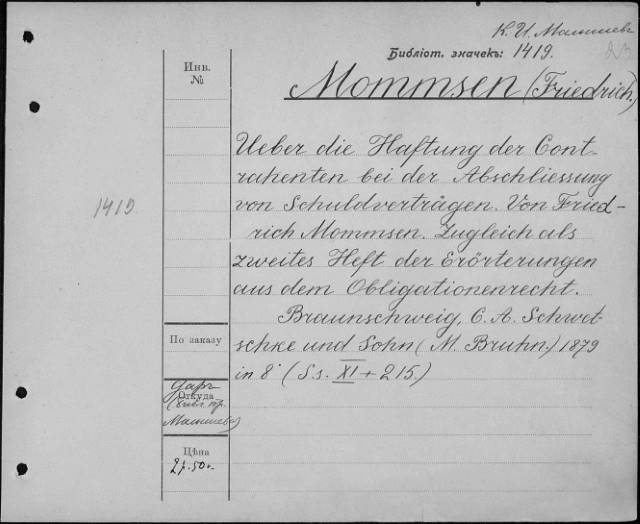 К. И. Малышев
Библіот. значекъ: 1419.
Инв.
№
Mommsen (Friedrich.)
Ueber die Haftung der Cont-
rahenten bei der Abschliessung
von Schuldverträgen. Von Fried-
rich Mommsen. Zugleich als
zweites Heft der Erörterungen
aus dem Obligationenrecht.
Braunschweig, C. A. Schwet-
schke und Sohn (M. Bruhn.) 1879
in 8° (S.s. XI + 215.)
1419
По заказу
Даръ
Откуда
Малышева
Цѣна
2 р. 50 к.